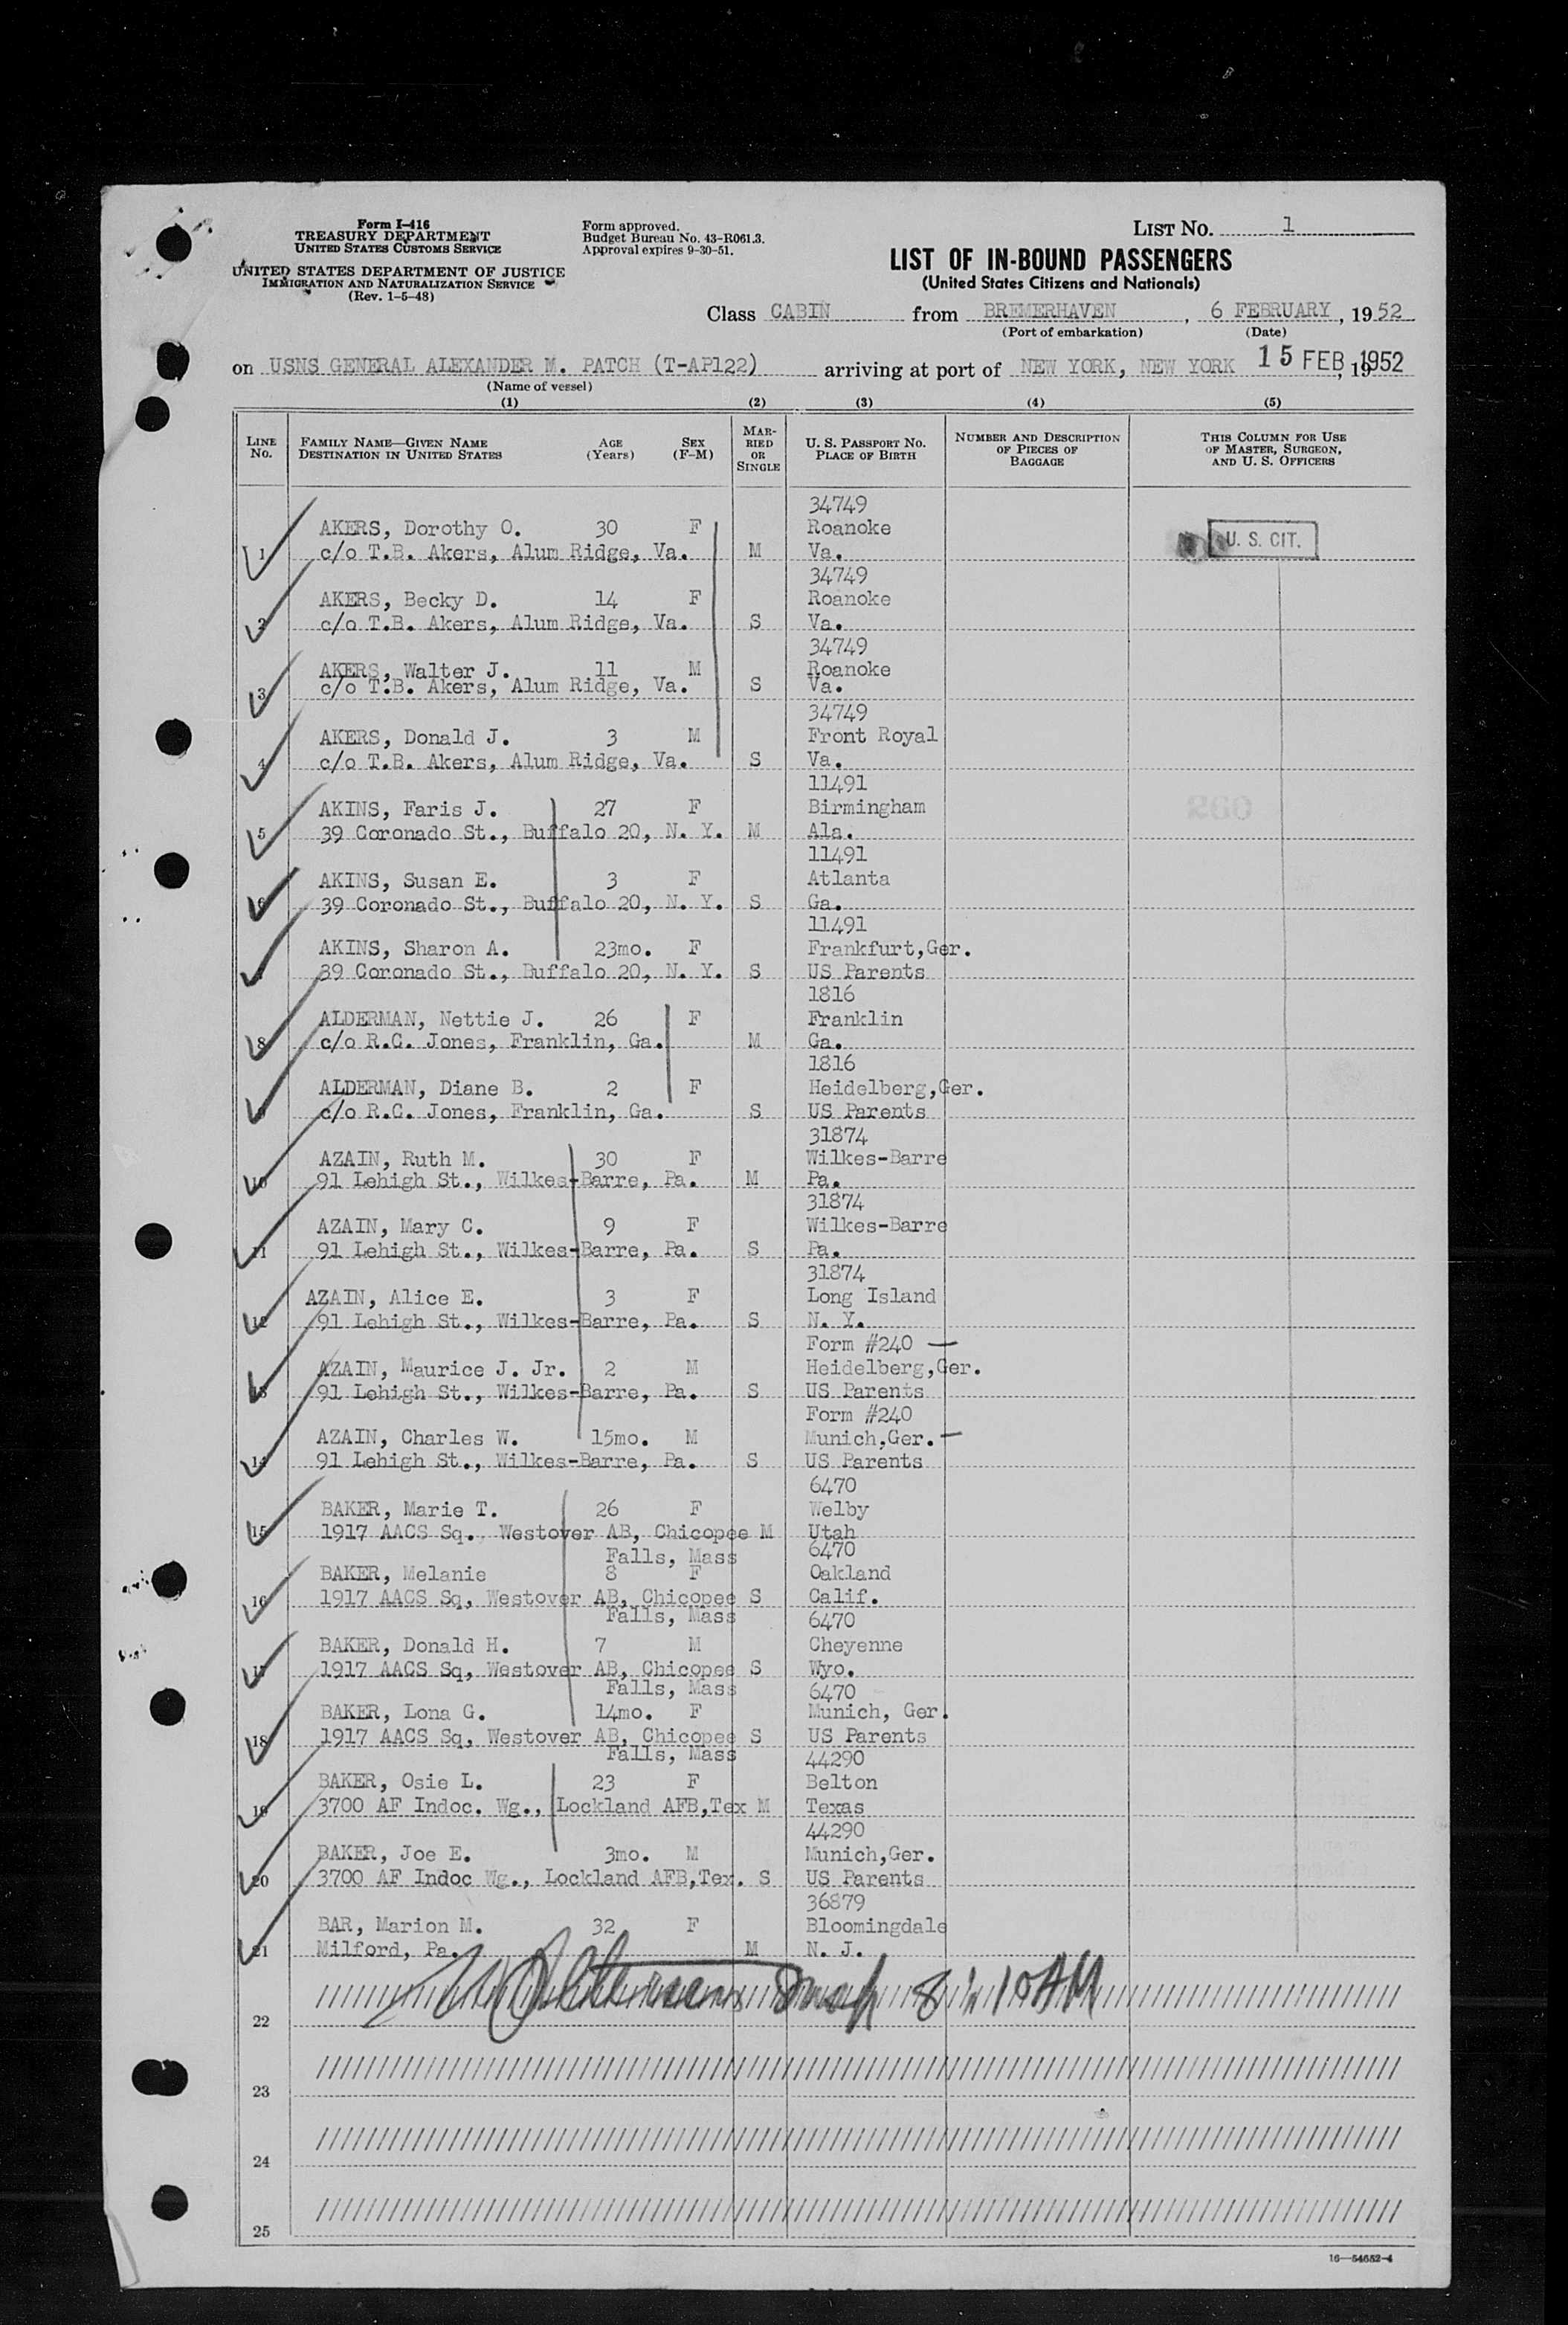 Form I-416
TREASURY DEPARTMENT
UNITED STATES CUSTOMS SERVICE
UNITED STATES DEPARTMENT OF JUSTICE
IMMIGRATION AND NATURALIZATION SERVICE
(Rev. 1-5-48)
Form approved.
Budget Bureau No. 43-R061.3.
Approval expires 9-30-51.
LIST NO. 1
LIST OF IN-BOUND PASSENGERS
(United States Citizens and Nationals)
Class CABIN from BREMERHAVEN, 6 FEBRUARY, 1952
(Port of embarkation) (Date)
on USNS GENERAL ALEXANDER M. PATCH (T-AP122) arriving at port of NEW YORK, NEW YORK 15 FEB 1952, 19
(Name of vessel)
(1) (2) (3) (4) (5)
LINE NO.
FAMILY NAME—GIVEN NAME
DESTINATION IN UNITED STATES
AGE (Years)
SEX (F-M)
MARRIED OR SINGLE
U. S. PASSPORT NO.
PLACE OF BIRTH
NUMBER AND DESCRIPTION OF PIECES OF BAGGAGE
THIS COLUMN FOR USE OF MASTER, SURGEON, AND U. S. OFFICERS
34749
AKERS, Dorothy O. 30 F Roanoke
1 c/o T.B. Akers, Alum Ridge, Va. M Va. U. S. CIT.
34749
AKERS, Becky D. 14 F Roanoke
2 c/o T.B. Akers, Alum Ridge, Va. S Va.
34749
AKERS, Walter J. 11 M Roanoke
3 c/o T.B. Akers, Alum Ridge, Va. S Va.
34749
AKERS, Donald J. 3 M Front Royal
4 c/o T.B. Akers, Alum Ridge, Va. S Va.
11491
AKINS, Faris J. 27 F Birmingham
5 39 Coronado St., Buffalo 20, N. Y. M Ala.
11491
AKINS, Susan E. 3 F Atlanta
6 39 Coronado St., Buffalo 20, N. Y. S Ga.
11491
AKINS, Sharon A. 23mo. F Frankfurt,Ger.
39 Coronado St., Buffalo 20, N. Y. S US Parents
1816
ALDERMAN, Nettie J. 26 F Franklin
8 c/o R.C. Jones, Franklin, Ga. M Ga.
1816
ALDERMAN, Diane B. 2 F Heidelberg,Ger.
9 c/o R.C. Jones, Franklin, Ga. S US Parents
31874
AZAIN, Ruth M. 30 F Wilkes-Barre
10 91 Lehigh St., Wilkes-Barre, Pa. M Pa.
31874
AZAIN, Mary C. 9 F Wilkes-Barre
11 91 Lehigh St., Wilkes-Barre, Pa. S Pa.
31874
AZAIN, Alice E. 3 F Long Island
12 91 Lehigh St., Wilkes-Barre, Pa. S N. Y.
Form #240 —
AZAIN, Maurice J. Jr. 2 M Heidelberg,Ger.
13 91 Lehigh St., Wilkes-Barre, Pa. S US Parents
Form #240
AZAIN, Charles W. 15mo. M Munich,Ger. —
14 91 Lehigh St., Wilkes-Barre, Pa. S US Parents
6470
BAKER, Marie T. 26 F Welby
15 1917 AACS Sq., Westover AB, Chicopee M Utah
Falls, Mass 6470
BAKER, Melanie 8 F Oakland
16 1917 AACS Sq, Westover AB, Chicopee S Calif.
Falls, Mass 6470
BAKER, Donald H. 7 M Cheyenne
17 1917 AACS Sq, Westover AB, Chicopee S Wyo.
Falls, Mass 6470
BAKER, Lona G. 14mo. F Munich, Ger.
18 1917 AACS Sq, Westover AB, Chicopee S US Parents
Falls, Mass 44290
BAKER, Osie L. 23 F Belton
19 3700 AF Indoc. Wg., Lockland AFB,Tex M Texas
44290
BAKER, Joe E. 3mo. M Munich,Ger.
20 3700 AF Indoc Wg., Lockland AFB,Tex. S US Parents
36879
BAR, Marion M. 32 F Bloomingdale
21 Milford, Pa. M N. J.
10 AM
22
23
24
25
16—54652-4